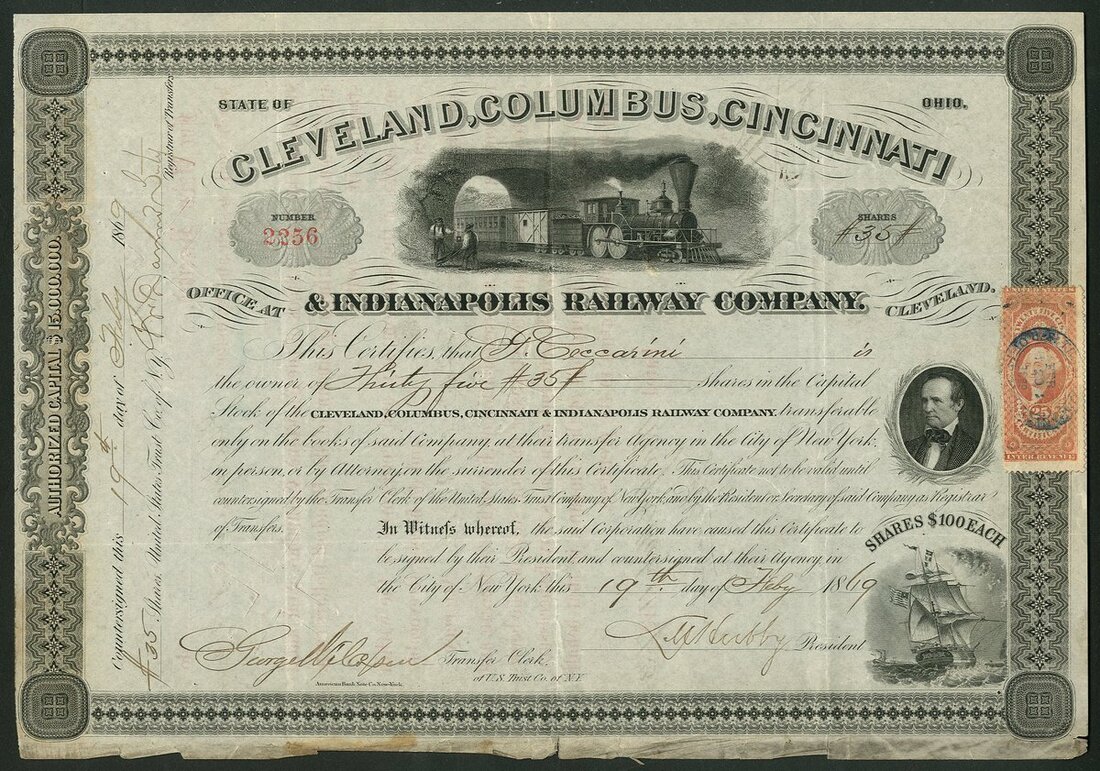 STATE OF
OHIO.
CLEVELAND, COLUMBUS, CINCINNATI
NUMBER
2256
SHARES
#35#
OFFICE AT
& INDIANAPOLIS RAILWAY COMPANY.
CLEVELAND.
This Certifies, that G. Ceccarini is
the owner of Thirty five #35# Shares in the Capital
Stock of the CLEVELAND, COLUMBUS, CINCINNATI & INDIANAPOLIS RAILWAY COMPANY, transferable
only on the books of said Company, at their transfer Agency in the City of New York,
in person, or by Attorney, on the surrender of this Certificate. This Certificate not to be valid until
countersigned by the Transfer Clerk of the United States Trust Company of New York, and by the President or Secretary of said Company as Registrar
of Transfers.
In Witness whereof, the said Corporation have caused this Certificate to
be signed by their President and countersigned at their Agency, in
the City of New York this 19th day of Feby 1869
SHARES $100 EACH
President
Transfer Clerk.
of U.S. Trust Co. of N.Y.
American Bank Note Co. New-York.
AUTHORIZED CAPITAL $15,000,000.
Countersigned this 19th day of Feby 1869
#35 Shares. United States Trust Co. of N.Y.
Registrar of Transfers
25
INTER. REVENUE